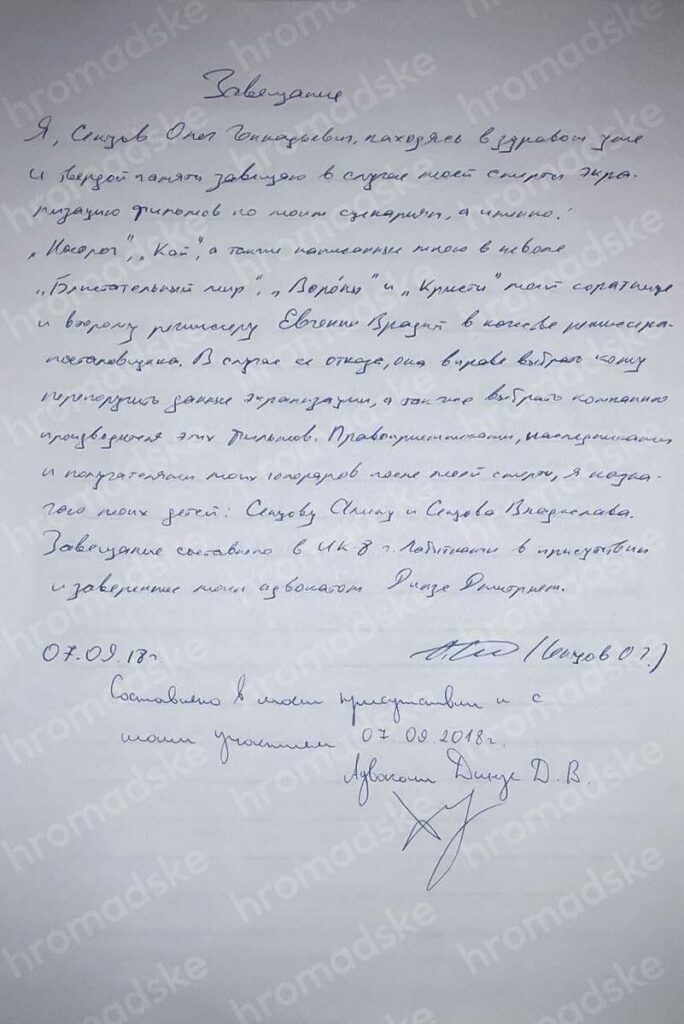 Завещание
Я, Сенцов Олег Геннадьевич, находясь в здравом уме
и твердой памяти завещаю в случае моей смерти экра-
низацию фильмов по моим сценариям, а именно:
„Носорог", „Кай", а также написанные мною в неволе
„Блистательный мир", „Воро́ны" и „Кристи" моей соратнице
и второму режиссеру Евгении Врадий в качестве режиссера-
постановщика. В случае ее отказа, она вправе выбрать кому
перепоручить данные экранизации, а так же выбрать компанию
производителя этих фильмов. Правоприемниками, наследниками
и получателями моих гонораров после моей смерти, я назна-
чаю моих детей: Сенцову Алину и Сенцова Владислава.
Завещание составлено в ИК-8 г. Лабитнанги в присутствии
и заверенние моим адвокатом Динзе Дмитрием.
07.09.18г. (Сенцов О Г.)
Составлено в моем присутствии и с
моим участием 07.09.2018г.
Адвокат Динзе Д. В.
hromadske